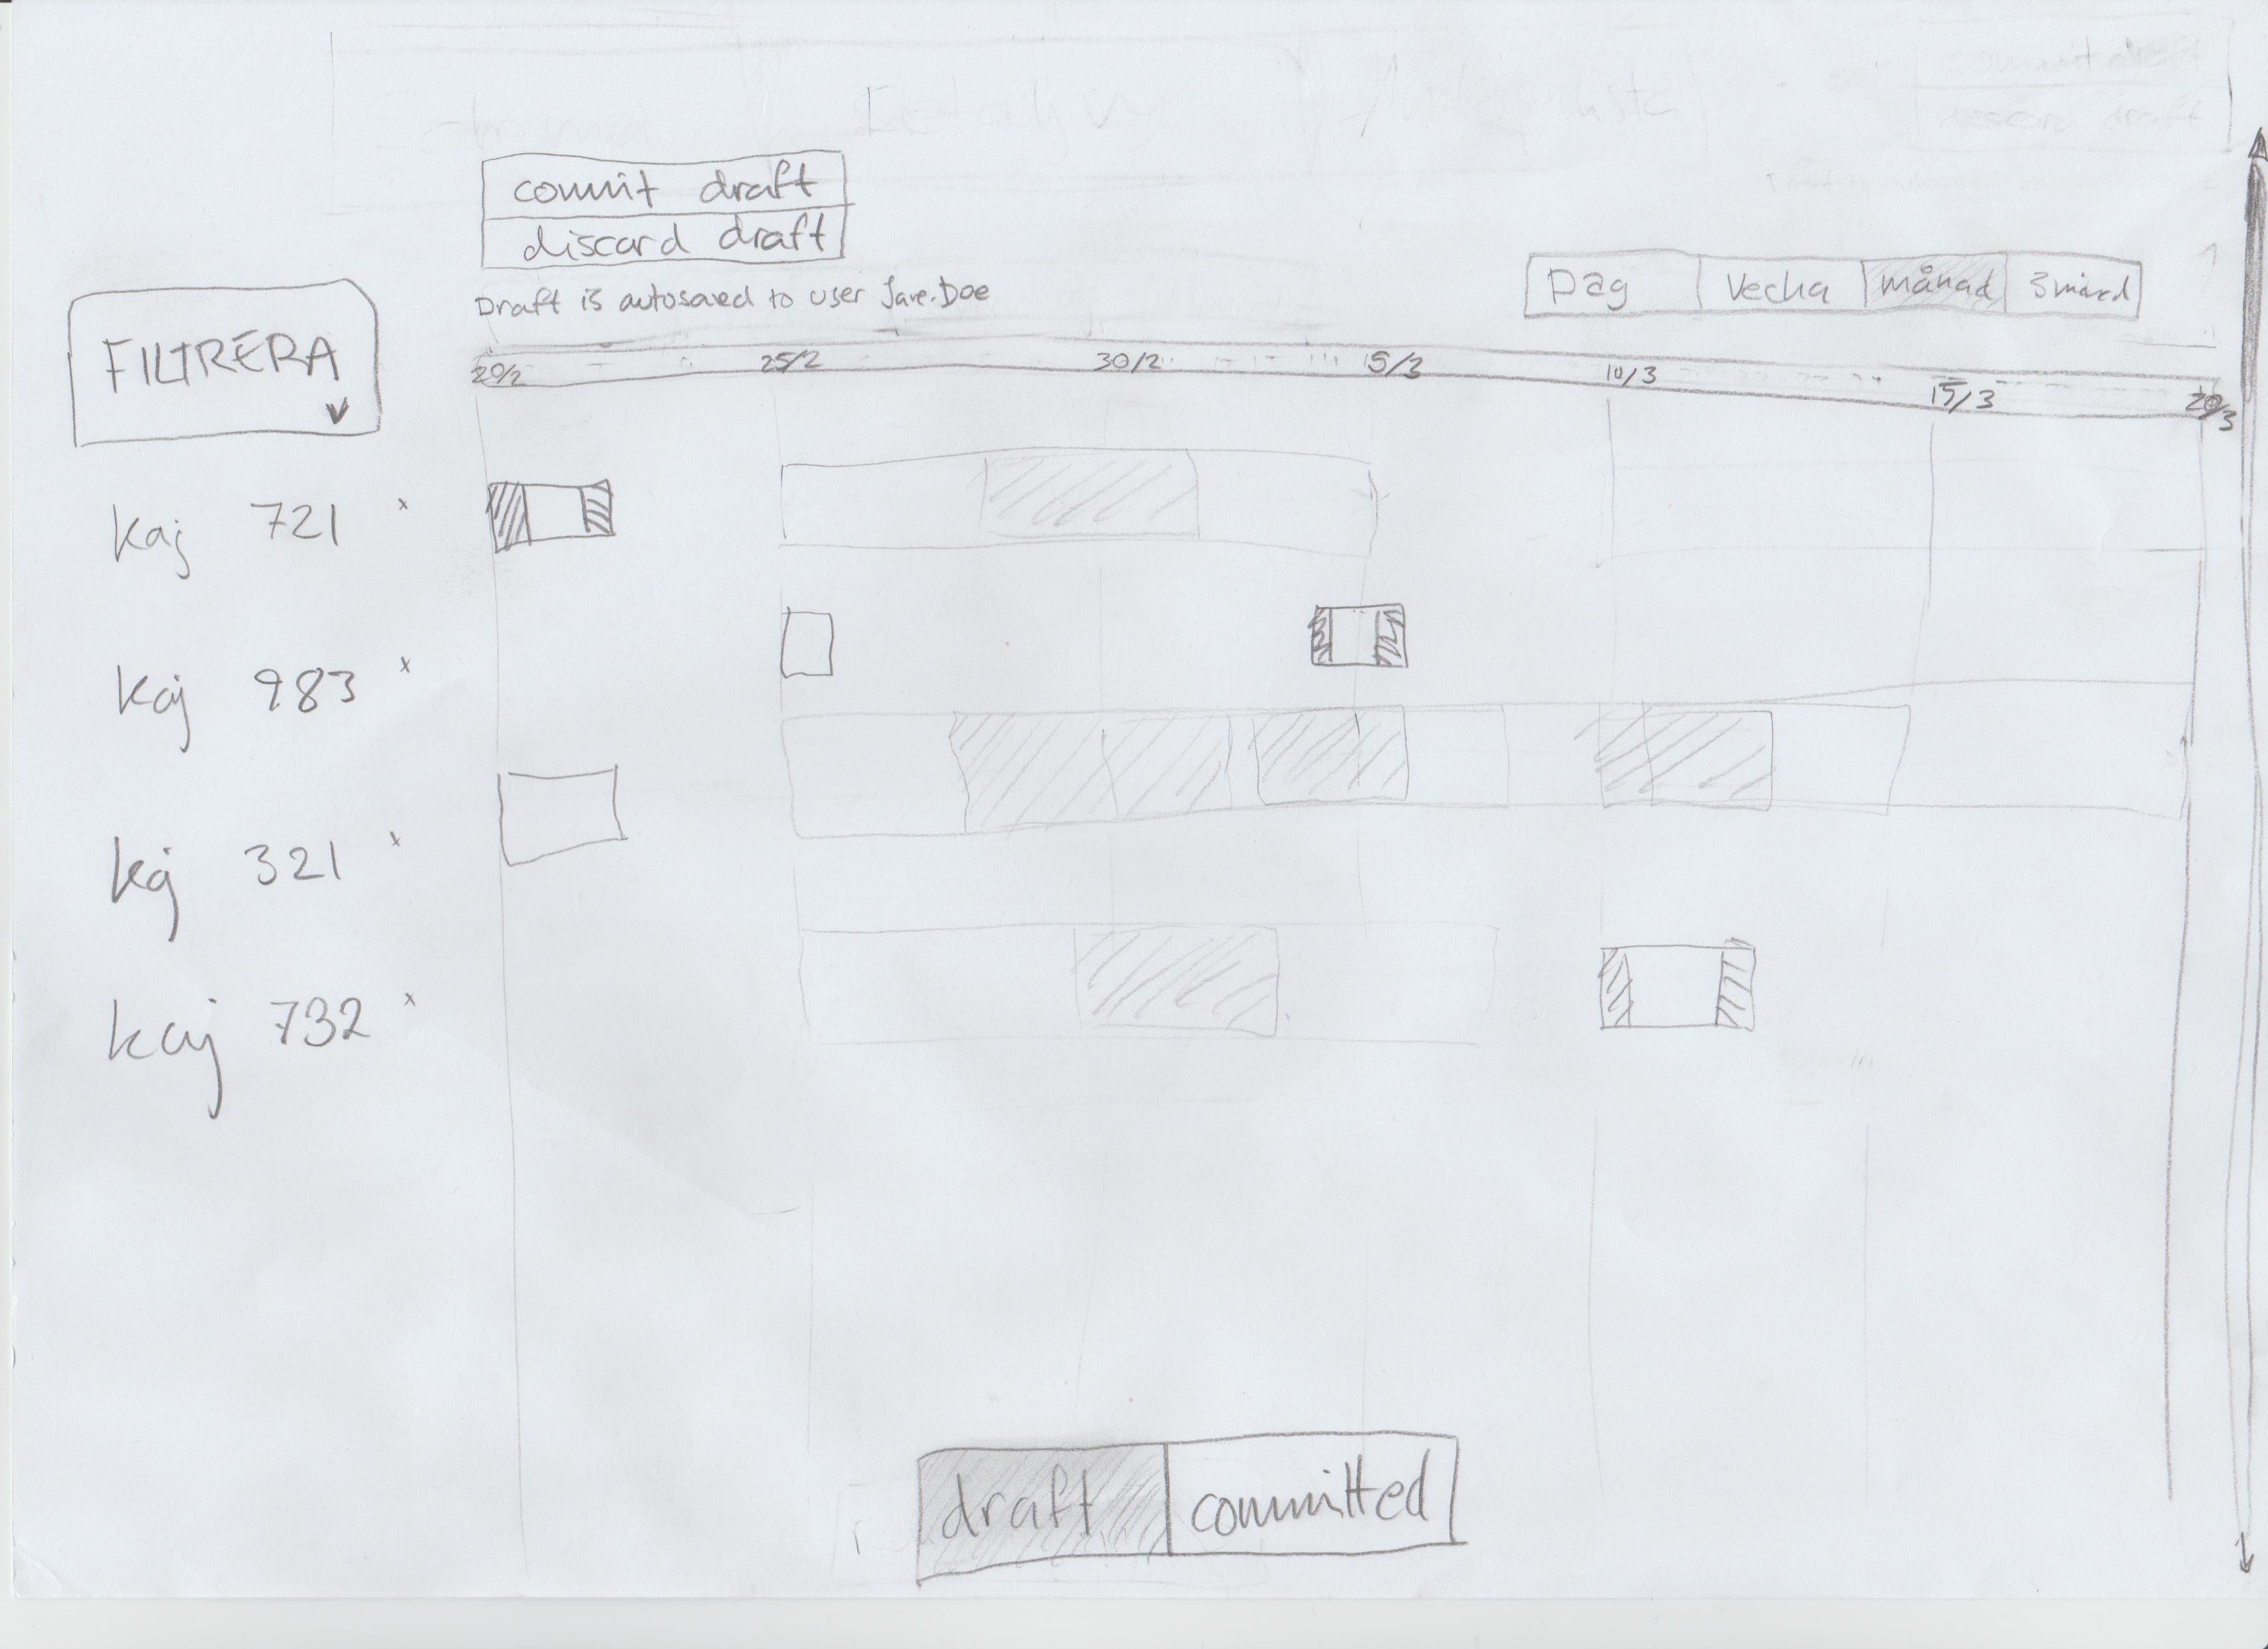 commit draft
discard draft
Draft is autosaved to user Jane.Doe
Dag Vecka månad 3 månad
FILTRERA
20/2 25/2 30/2 5/3 10/3 15/3 20/3
kaj 721 x
kaj 983 x
kaj 321 x
kaj 732 x
draft committed